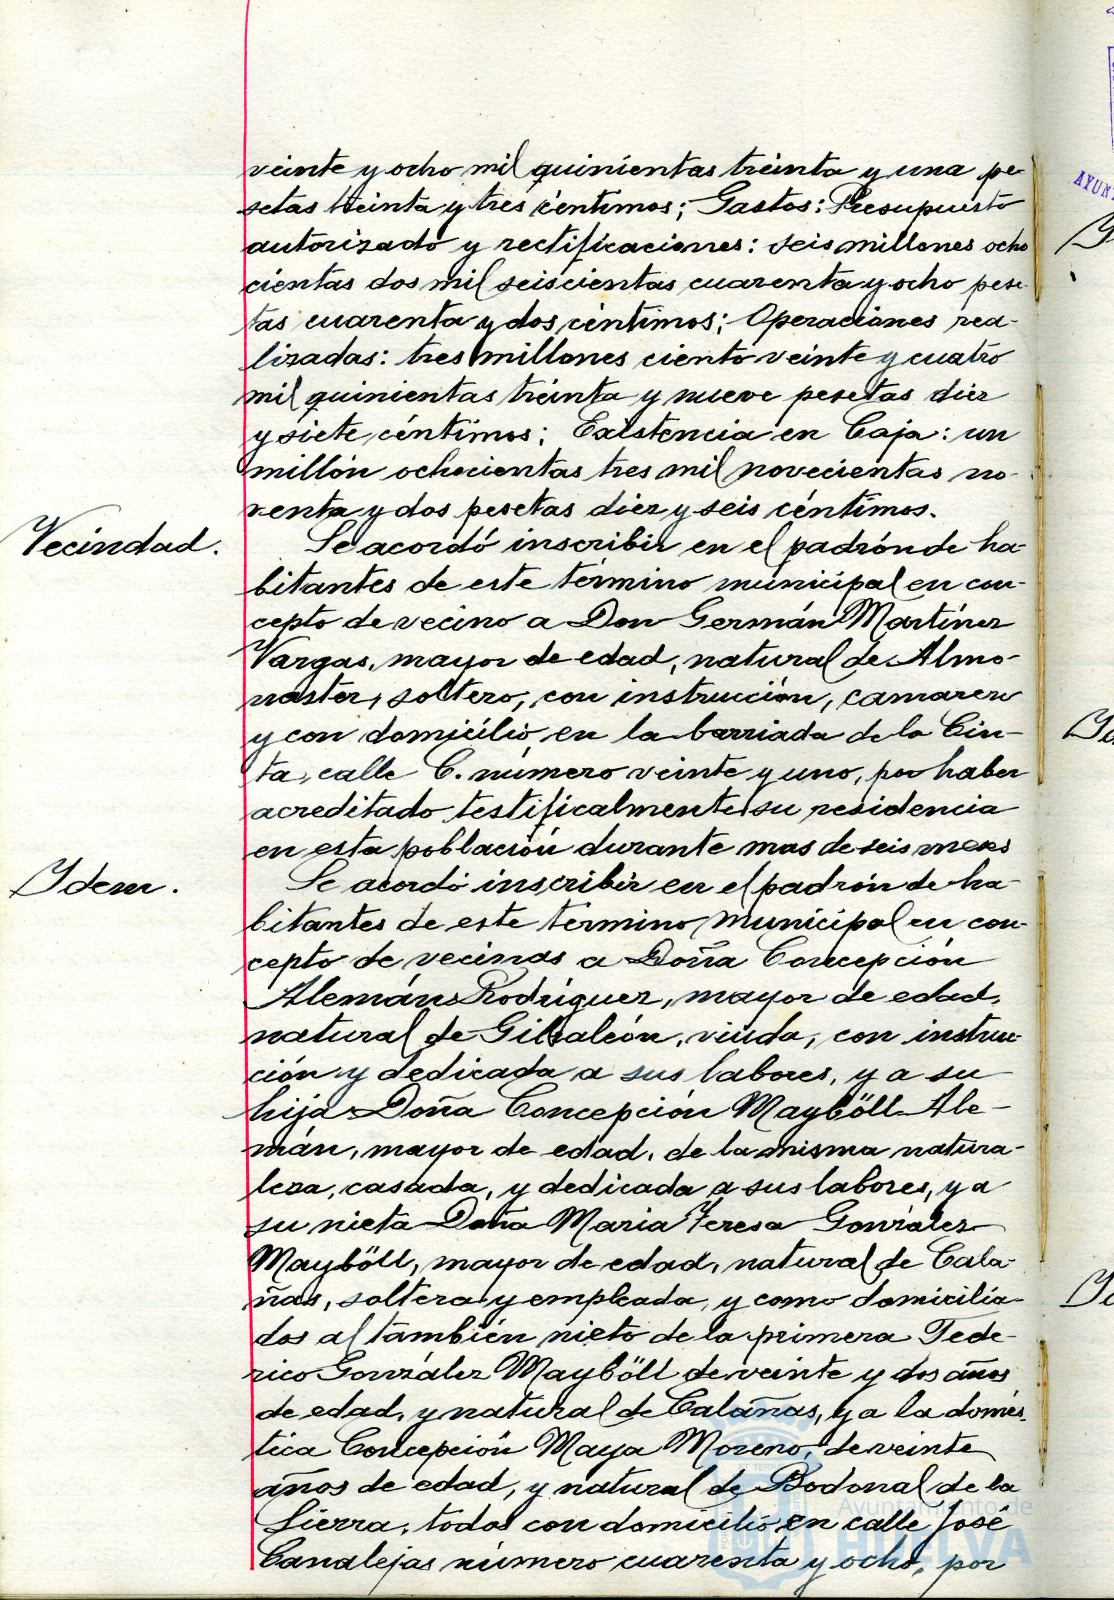 veinte y ocho mil quinientas treinta y una pe-
setas treinta y tres céntimos; Gastos: Presupuesto
autorizado y rectificaciones: seis millones ocho
cientas dos mil seiscientas cuarenta y ocho pese-
tas cuarenta y dos céntimos; Operaciones rea-
lizadas: tres millones ciento veinte y cuatro
mil quinientas treinta y nueve pesetas diez
y siete céntimos; Existencia en Caja: un
millón ochocientas tres mil novecientas no-
venta y dos pesetas diez y seis céntimos.
Vecindad.
Se acordó inscribir en el padrón de ha-
bitantes de este término municipal en con-
cepto de vecino a Don Germán Martínez
Vargas, mayor de edad, natural de Almo-
naster, soltero, con instrucción, camarero
y con domicilio en la barriada de la Cin-
ta, calle C. número veinte y uno, por haber
acreditado testificalmente su residencia
en esta población durante mas de seis meses
Idem.
Se acordó inscribir en el padrón de ha-
bitantes de este término municipal en con-
cepto de vecinas a Doña Concepción
Alemán Rodríguez, mayor de edad,
natural de Gibraleón, viuda, con instruc-
ción y dedicada a sus labores, y a su
hija Doña Concepción Mayböll Ale-
mán, mayor de edad, de la misma natura-
leza, casada, y dedicada a sus labores, y a
su nieta Doña María Teresa González
Mayböll, mayor de edad, natural de Cala-
ñas, soltera y empleada, y como domicilia-
dos al también nieto de la primera Fede-
rico González Mayböll de veinte y dos años
de edad, y natural de Calañas, y a la domés-
tica Concepción Maya Moreno, de veinte
años de edad, y natural de Bodonal de la
Sierra, todos con domicilio en calle José
Canalejas número cuarenta y ocho, por
Ayuntamiento de
HUELVA